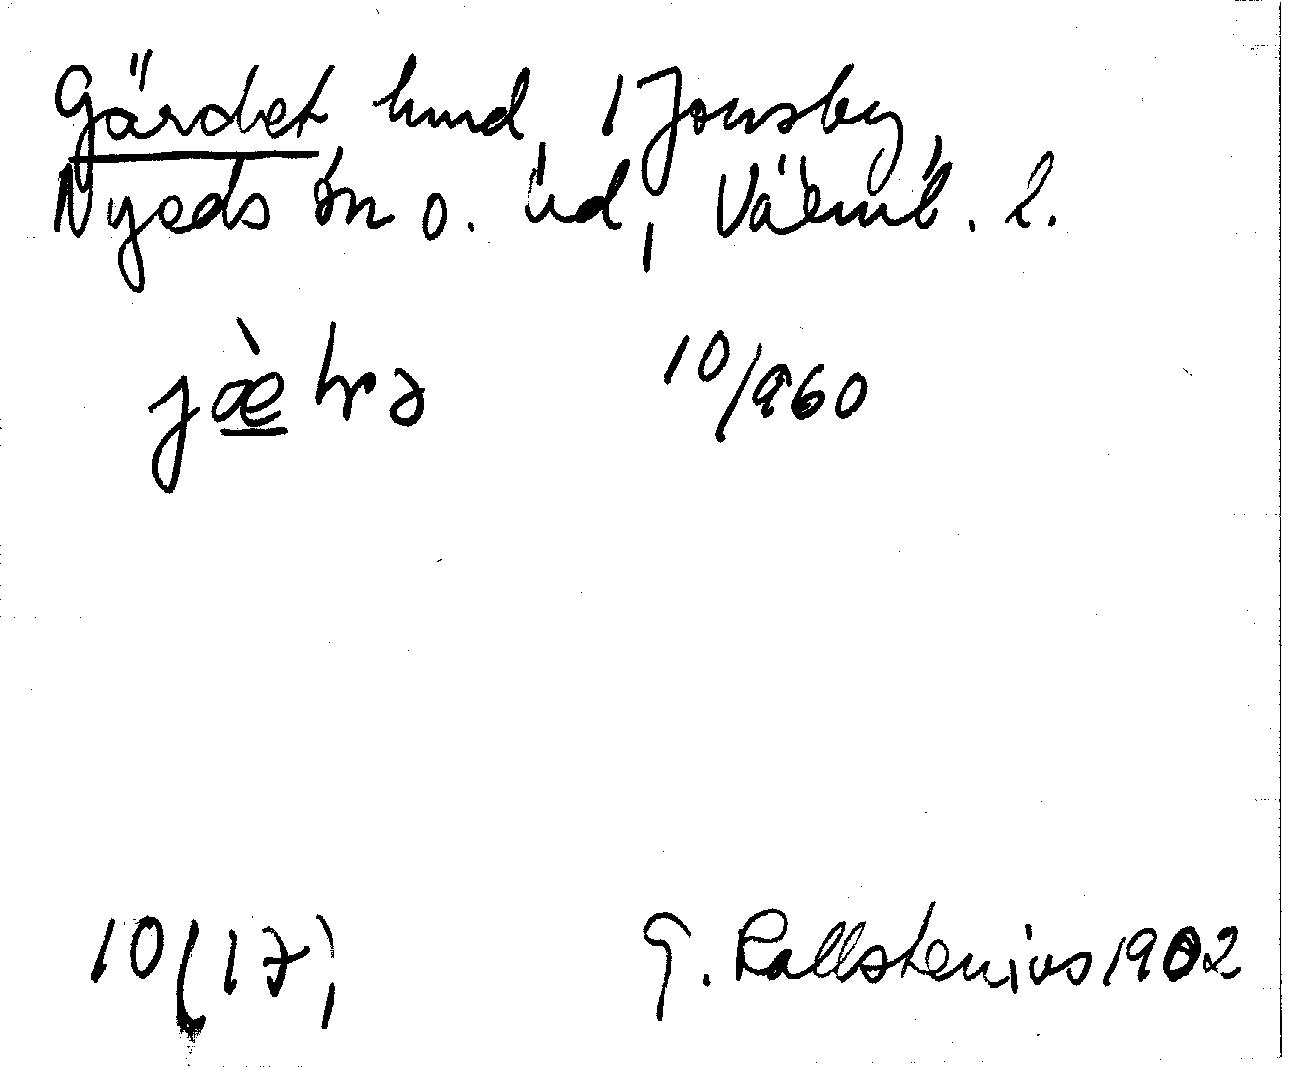 Gärdet hmd i Jonsby,
Nyeds sn o. hd, Värml. l.
jæ̀hrə 10/960
10(17) G. Rallstenius 1902